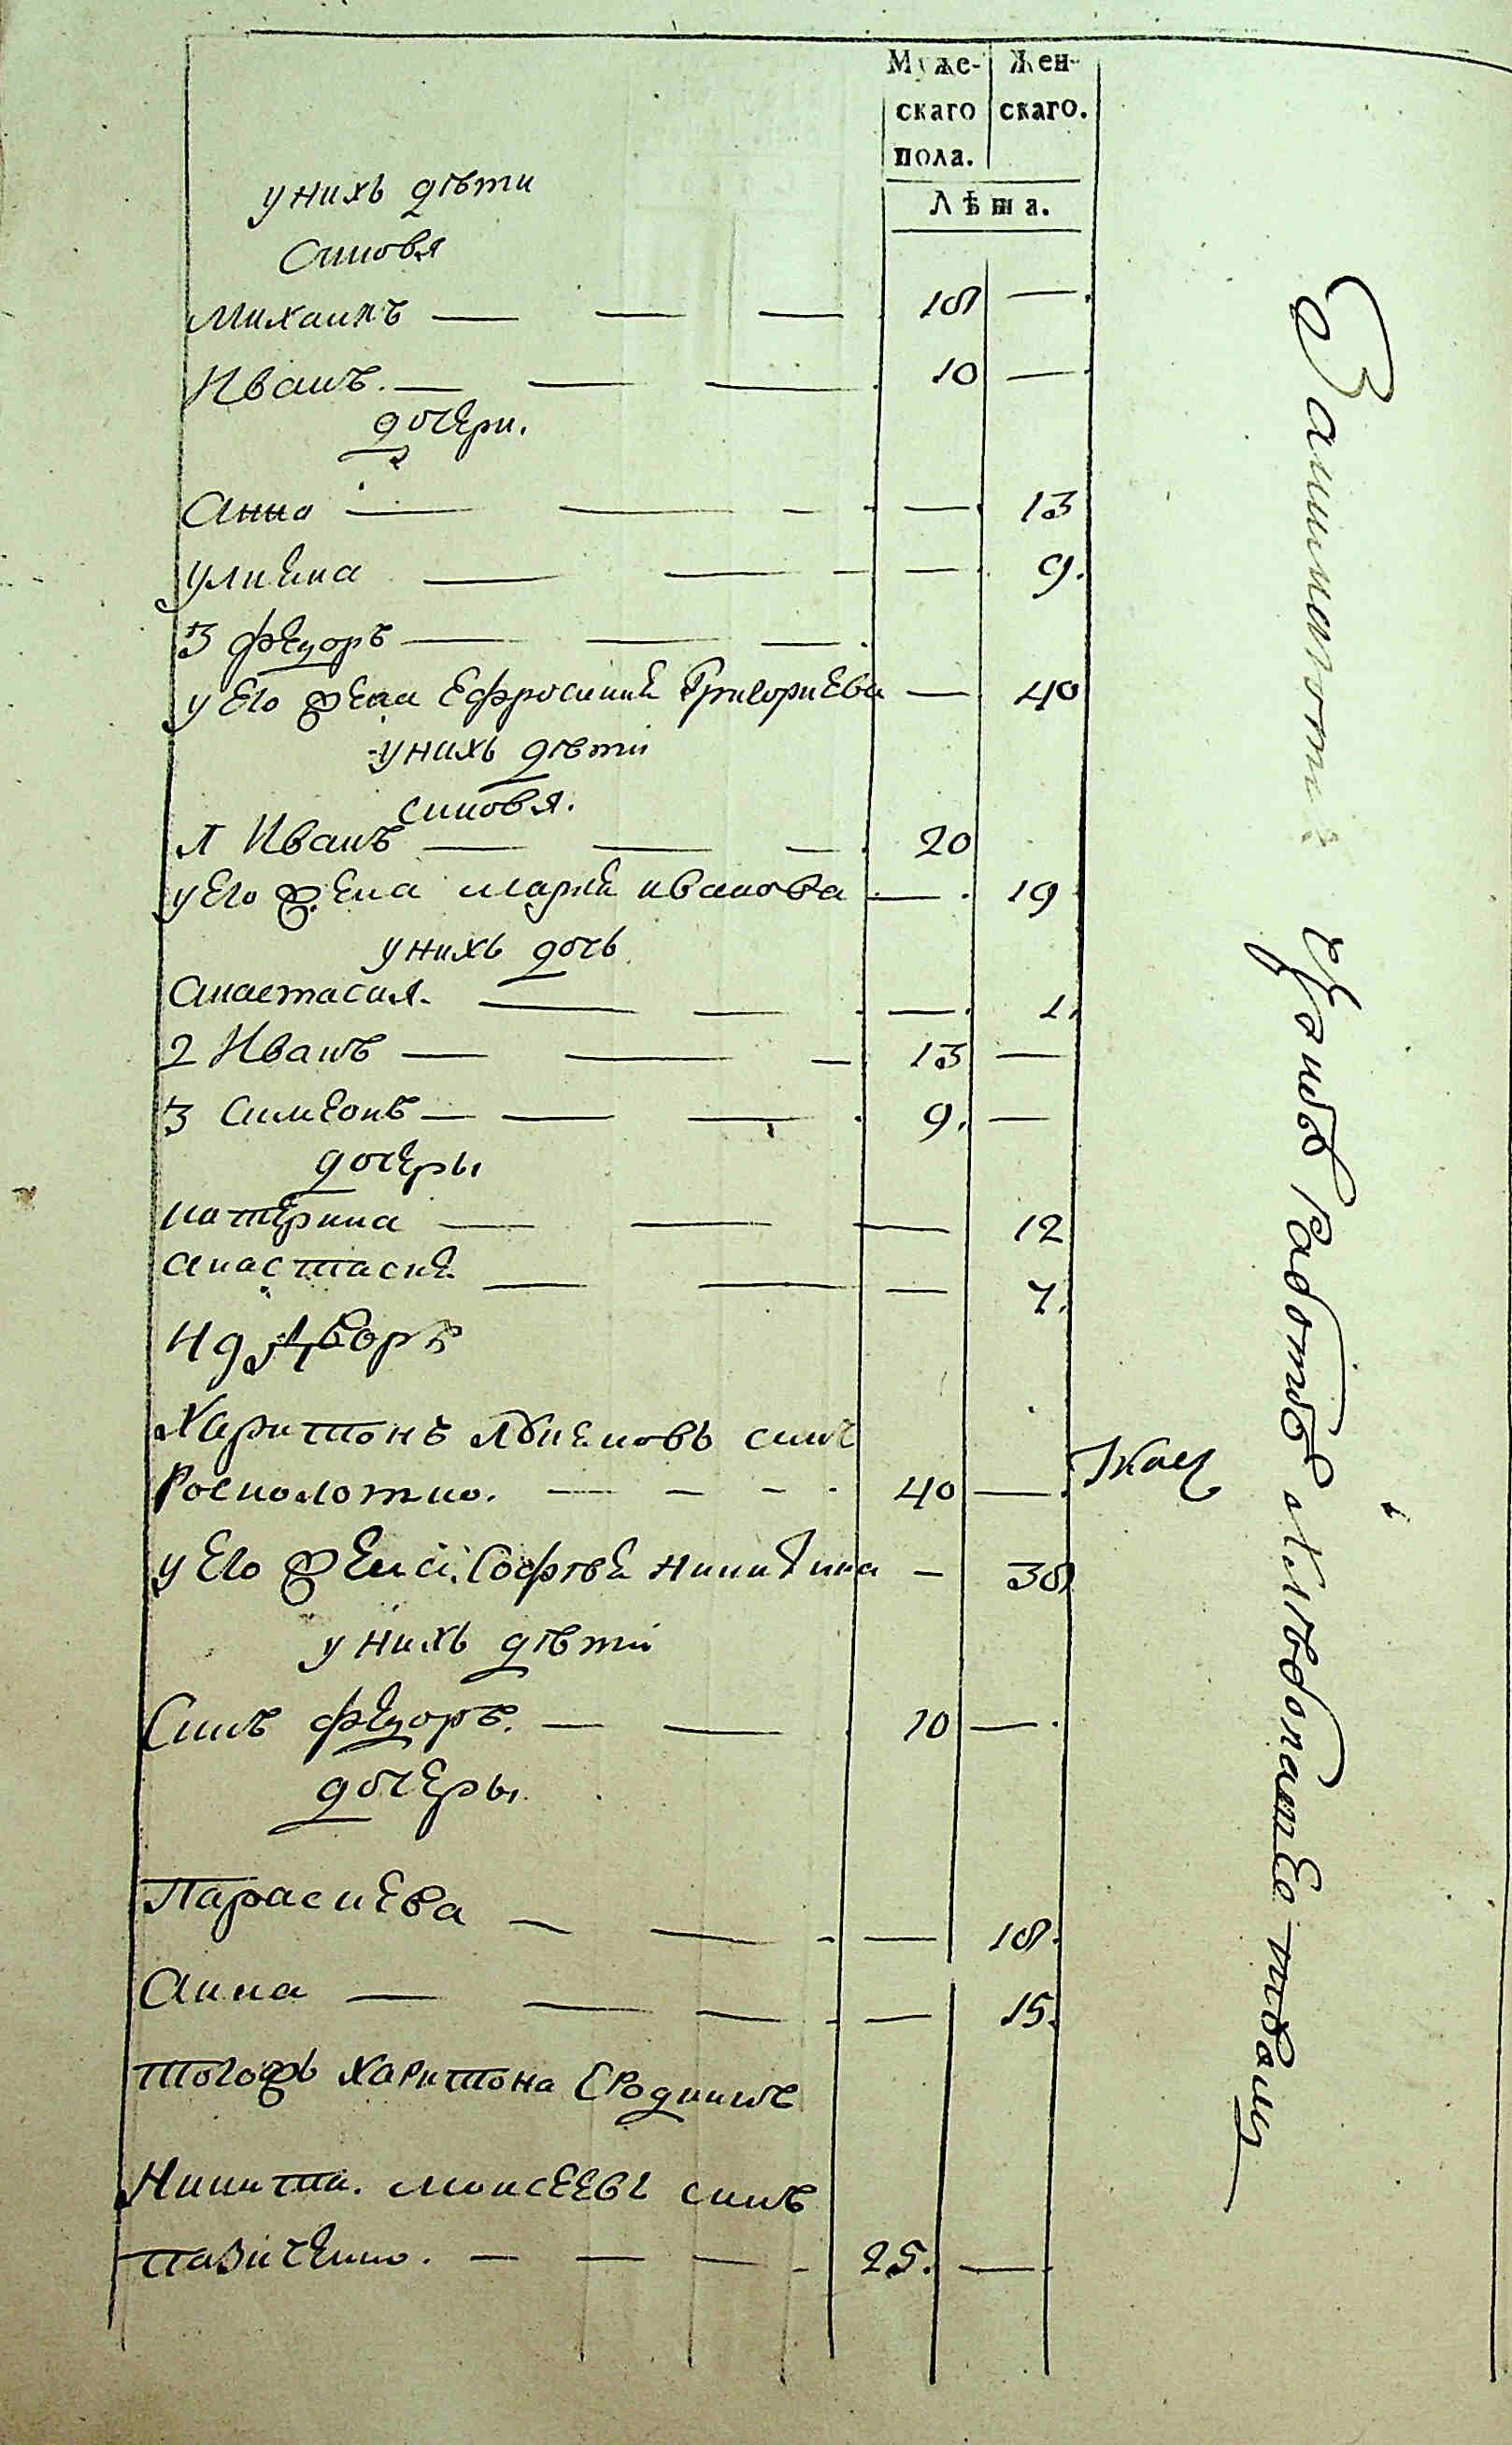 Муже- Жен-
скаго скаго.
пола.
Лѣта.
у нихъ дѣти
синовя
Михаилъ — — — 18 —
Иванъ. — — — 10 —
дочери.
Анна — — — — 13
улиена — — — — 9.
3 Федоръ — — —
у его жена Ефросиние Григориева — 40
у нихъ дѣти
синовя.
1 Иванъ — — — 20
у его жена марие иванова — 19
у нихъ дочь
Анастасия. — — — 1.
2 Иванъ — — — 13 —
3 Симеонъ — — — 9. —
дочеры
катерина — — — 12
анастасие — — — 7.
49 Дворъ
Харитонъ синъ
— — — 40 — Ткац
у его жена Софѣе никитина — 38
у нихъ дѣти
Синъ Федоръ. — — 10 —
дочеры
Параскева — — — 18.
Анна — — — — 15.
тогожъ Харитона сродникъ
Никита. моисеевъ синъ
— — — 25. —
работъ хлѣбопашествомъ